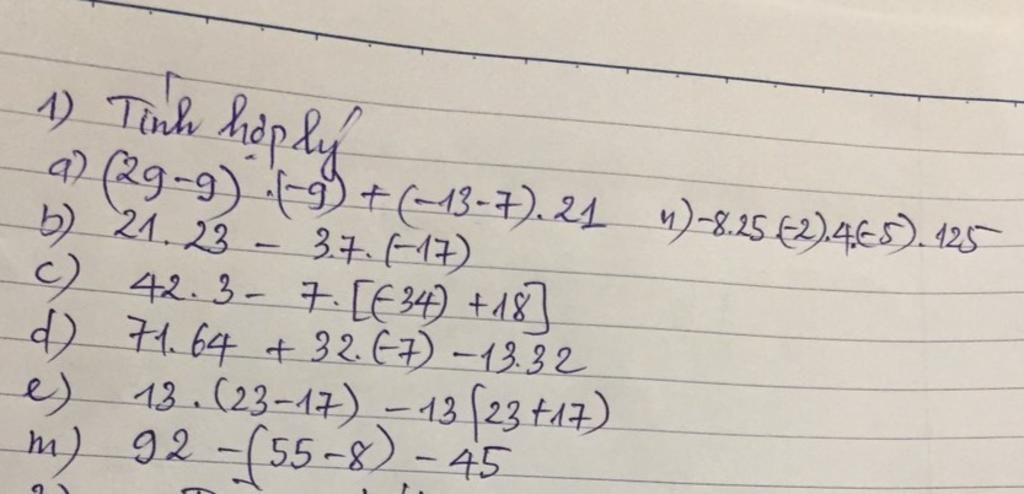 1) Tính hợp lý
a) (29-9).(-9)+(-13-7).21
n) -8.25(-2).4.(-5).125
b) 21.23 - 3.7.(-17)
c) 42.3 - 7.[(-34)+18]
d) 71.64 + 32.(-7) - 13.32
e) 13.(23-17) - 13(23+17)
m) 92 - (55-8) - 45